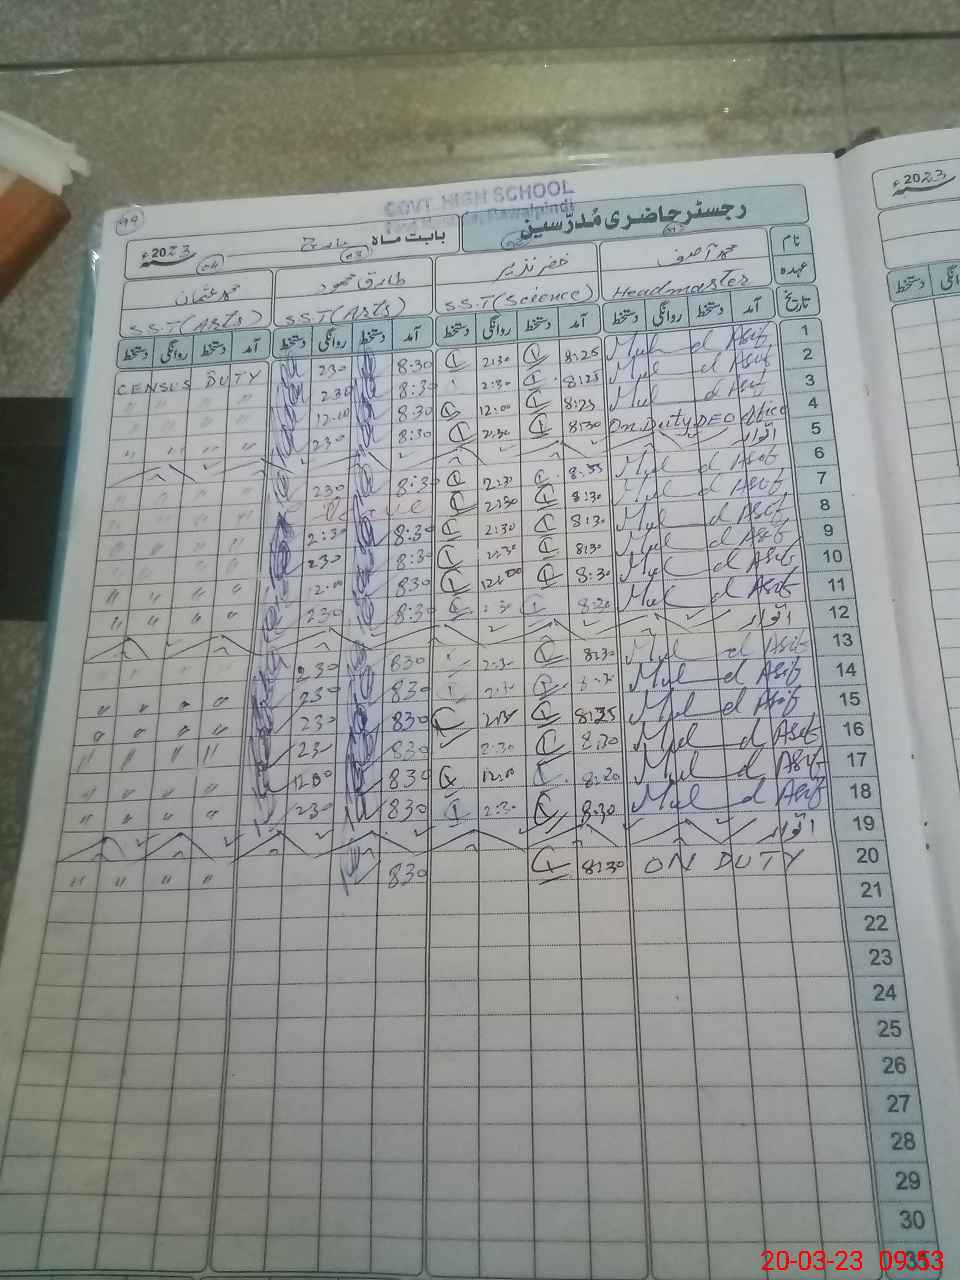 99
GOVT. HIGH SCHOOL
Rawalpindi
رجسٹر حاضری مُدرّسین
بابت ماہ مارچ 2023ء
نام محمد آصف خضر نذیر طارق محمود محمد عثمان
عہدہ Headmaster S.S.T (Science) S.S.T (Arts) S.S.T (Arts)
تاریخ آمد دستخط روانگی دستخط آمد دستخط روانگی دستخط آمد دستخط روانگی دستخط
1 Muhd Asif 8:25 2:30 8:30 230 CENSUS DUTY
2 Muhd Asif 8:25 2:30 8:30 230 " " " "
3 Muhd Asif 8:25 12:00 8:30 12:00 " " " "
4 On Duty DEO Office 8:30 2:30 8:30 230 " " " "
5 اتوار
6 Muhd Asif 8:35 2:30 8:30 230 " " " "
7 Muhd Asif 8:30 2:30 " " " "
8 Muhd Asif 8:30 2:30 8:30 2:30 " " " "
9 Muhd Asif 8:30 2:30 8:30 230 " " " "
10 Muhd Asif 8:30 12:00 830 12:00 " " " "
11 Muhd Asif 8:30 2:30 8:30 230 " " " "
12 اتوار
13 Muhd Asif 8:30 2:30 830 230 " " " "
14 Muhd Asif 8:30 2:30 830 230 " " " "
15 Muhd Asif 8:35 830 230 " " " "
16 Muhd Asif 8:30 2:30 830 23 " " " "
17 Muhd Asif 8:20 12:00 830 1200 " " " "
18 Muhd Asif 8:30 2:30 830 230 " " " "
19 اتوار
20 ON DUTY 8:30 830 " " " "
21
22
23
24
25
26
27
28
29
30
31
2023ء
دستخط
20-03-23 09:53